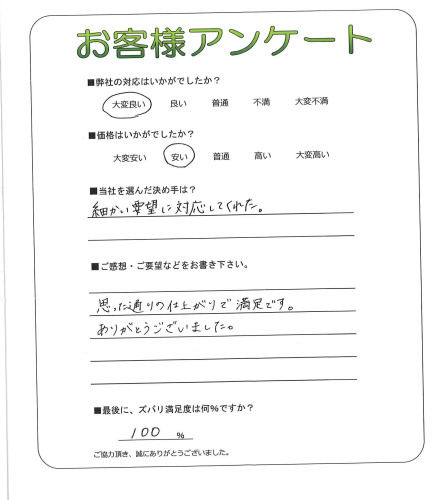 お客様アンケート
■弊社の対応はいかがでしたか？
大変良い 良い 普通 不満 大変不満
■価格はいかがでしたか？
大変安い 安い 普通 高い 大変高い
■当社を選んだ決め手は？
細かい要望に対応してくれた。
■ご感想・ご要望などをお書き下さい。
思った通りの仕上がりで満足です。
ありがとうございました。
■最後に、ズバリ満足度は何％ですか？
100 %
ご協力頂き、誠にありがとうございました。